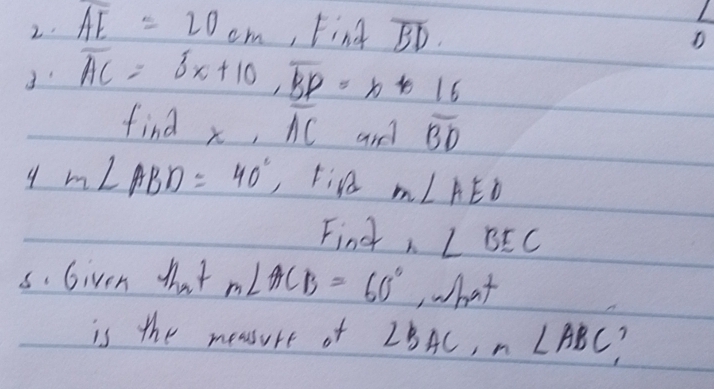 2. AE = 20 cm, Find BD.
3. AC = 5x+10, BD = x + 16
find x, AC and BD
4 m∠ABD = 40°, Find m∠AED
Find ∠BEC
5. Given that m∠ACB = 60°, what
is the measure of ∠BAC, m∠ABC?
D